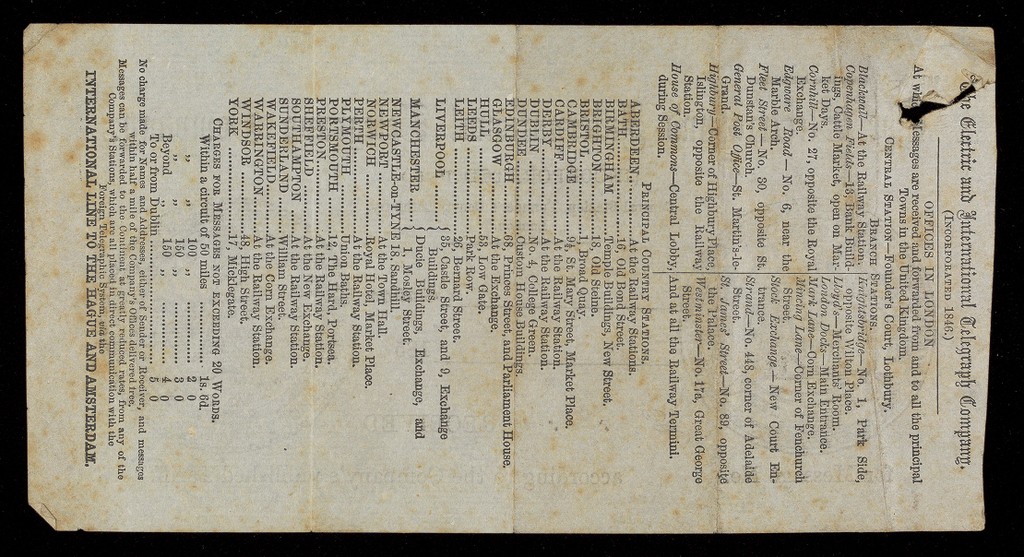 The Electric and International Telegraph Company,
(INCORPORATED 1846.)
OFFICES IN LONDON
At which Messages are received and forwarded from and to all the principal
Towns in the United Kingdom.
CENTRAL STATION—Founder's Court, Lothbury.
BRANCH STATIONS.
Blackwall—At the Railway Station.
Copenhagen Fields—13, Bank Build-
ings, Cattle Market, open on Mar-
ket Days.
Cornhill—No. 27, opposite the Royal
Exchange.
Edgware Road—No. 6, near the
Marble Arch.
Fleet Street—No. 30, opposite St.
Dunstan's Church.
General Post Office—St. Martin's-le-
Grand.
Highbury—Corner of Highbury Place,
Islington, opposite the Railway
Station.
House of Commons—Central Lobby,
during Session.
Knightsbridge—No. 1, Park Side,
opposite Wilton Place.
Lloyd's—Merchants' Room.
London Docks—Main Entrance.
Mark Lane—Corn Exchange.
Mincing Lane—Corner of Fenchurch
Street.
Stock Exchange—New Court En-
trance.
Strand—No. 448, corner of Adelaide
Street.
St. James' Street—No. 89, opposite
the Palace.
Westminster—No. 17a, Great George
Street.
And at all the Railway Termini.
PRINCIPAL COUNTRY STATIONS.
ABERDEEN............At the Railway Stations.
BATH..................16, Old Bond Street.
BIRMINGHAM.........Temple Buildings, New Street.
BRIGHTON............18, Old Steine.
BRISTOL...............1, Broad Quay.
CAMBRIDGE.........At the Railway Station.
CARDIFF...............94, St. Mary Street, Market Place.
DERBY..................At the Railway Station.
DUBLIN...............No. 4, College Green.
DUNDEE...............Custom House Buildings.
EDINBURGH.........68, Princes Street, and Parliament House.
GLASGOW............At the Exchange.
HULL..................53, Low Gate.
LEEDS..................Park Row.
LEITH..................26, Bernard Street.
LIVERPOOL............{35, Castle Street, and 9, Exchange
Buildings.
MANCHESTER.........{Ducie Buildings, Exchange, and
Mosley Street.
NEWCASTLE-on-TYNE 18, Sandhill.
NEWPORT...............At the Town Hall.
NORWICH...............Royal Hotel, Market Place.
PERTH..................At the Railway Station.
PLYMOUTH............Union Baths.
PORTSMOUTH.........12, The Hard, Portsea.
PRESTON...............At the Railway Station.
SHEFFIELD............At the New Exchange.
SOUTHAMPTON......At the Railway Station.
SUNDERLAND.........William Street.
WAKEFIELD............At the Corn Exchange.
WARRINGTON.........At the Railway Station.
WINDSOR...............48, High Street.
YORK..................17, Micklegate.
CHARGES FOR MESSAGES NOT EXCEEDING 20 WORDS.
Within a circuit of 50 miles............1s. 6d.
" " 100 "............2 0
" " 150 "............3 0
Beyond 150 "............4 0
To or from Dublin............5 0
No charge made for Names and Addresses, either of Sender or Receiver, and messages
within half a mile of the Company's Offices delivered free.
Messages can be forwarded to the Continent at greatly reduced rates, from any of the
Company's Stations, which are all placed in direct communication with the
Foreign Telegraphic System, via the
INTERNATIONAL LINE TO THE HAGUE AND AMSTERDAM.